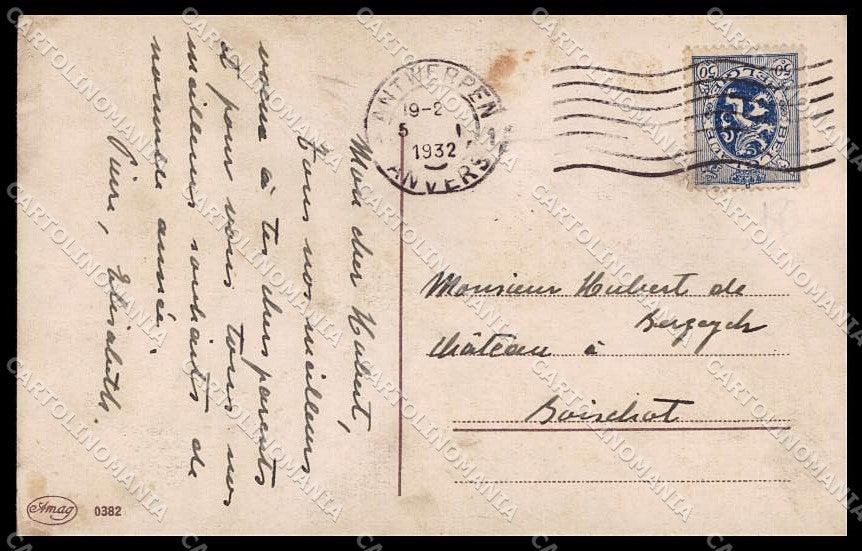 Mon cher Hubert,
Tous nos meilleurs
voeux à tes chers parents
et pour vous tous nos
meilleurs souhaits de
nouvelle année.
Pierre, Elisabeth.
ANTWERPEN
19-20
5 I
1932
ANVERS
50 BELGIQUE BELGIE 50
Monsieur Hubert de
Bergeyck
Château à
Boisschot
Amag 0382
CARTOLINOMANIA